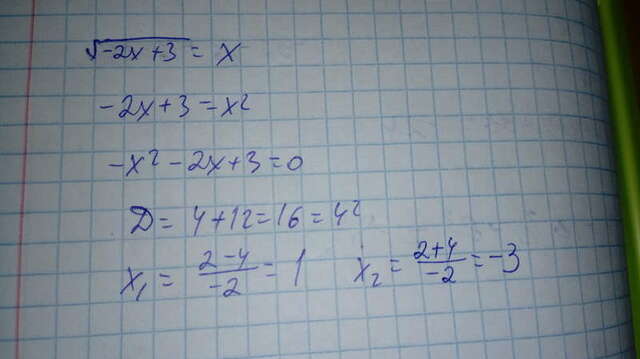 √-2x+3 = x
-2x+3 = x²
-x² - 2x+3 = 0
D = 4+12 = 16 = 4²
x₁ = (2-4)/(-2) = 1 x₂ = (2+4)/(-2) = -3